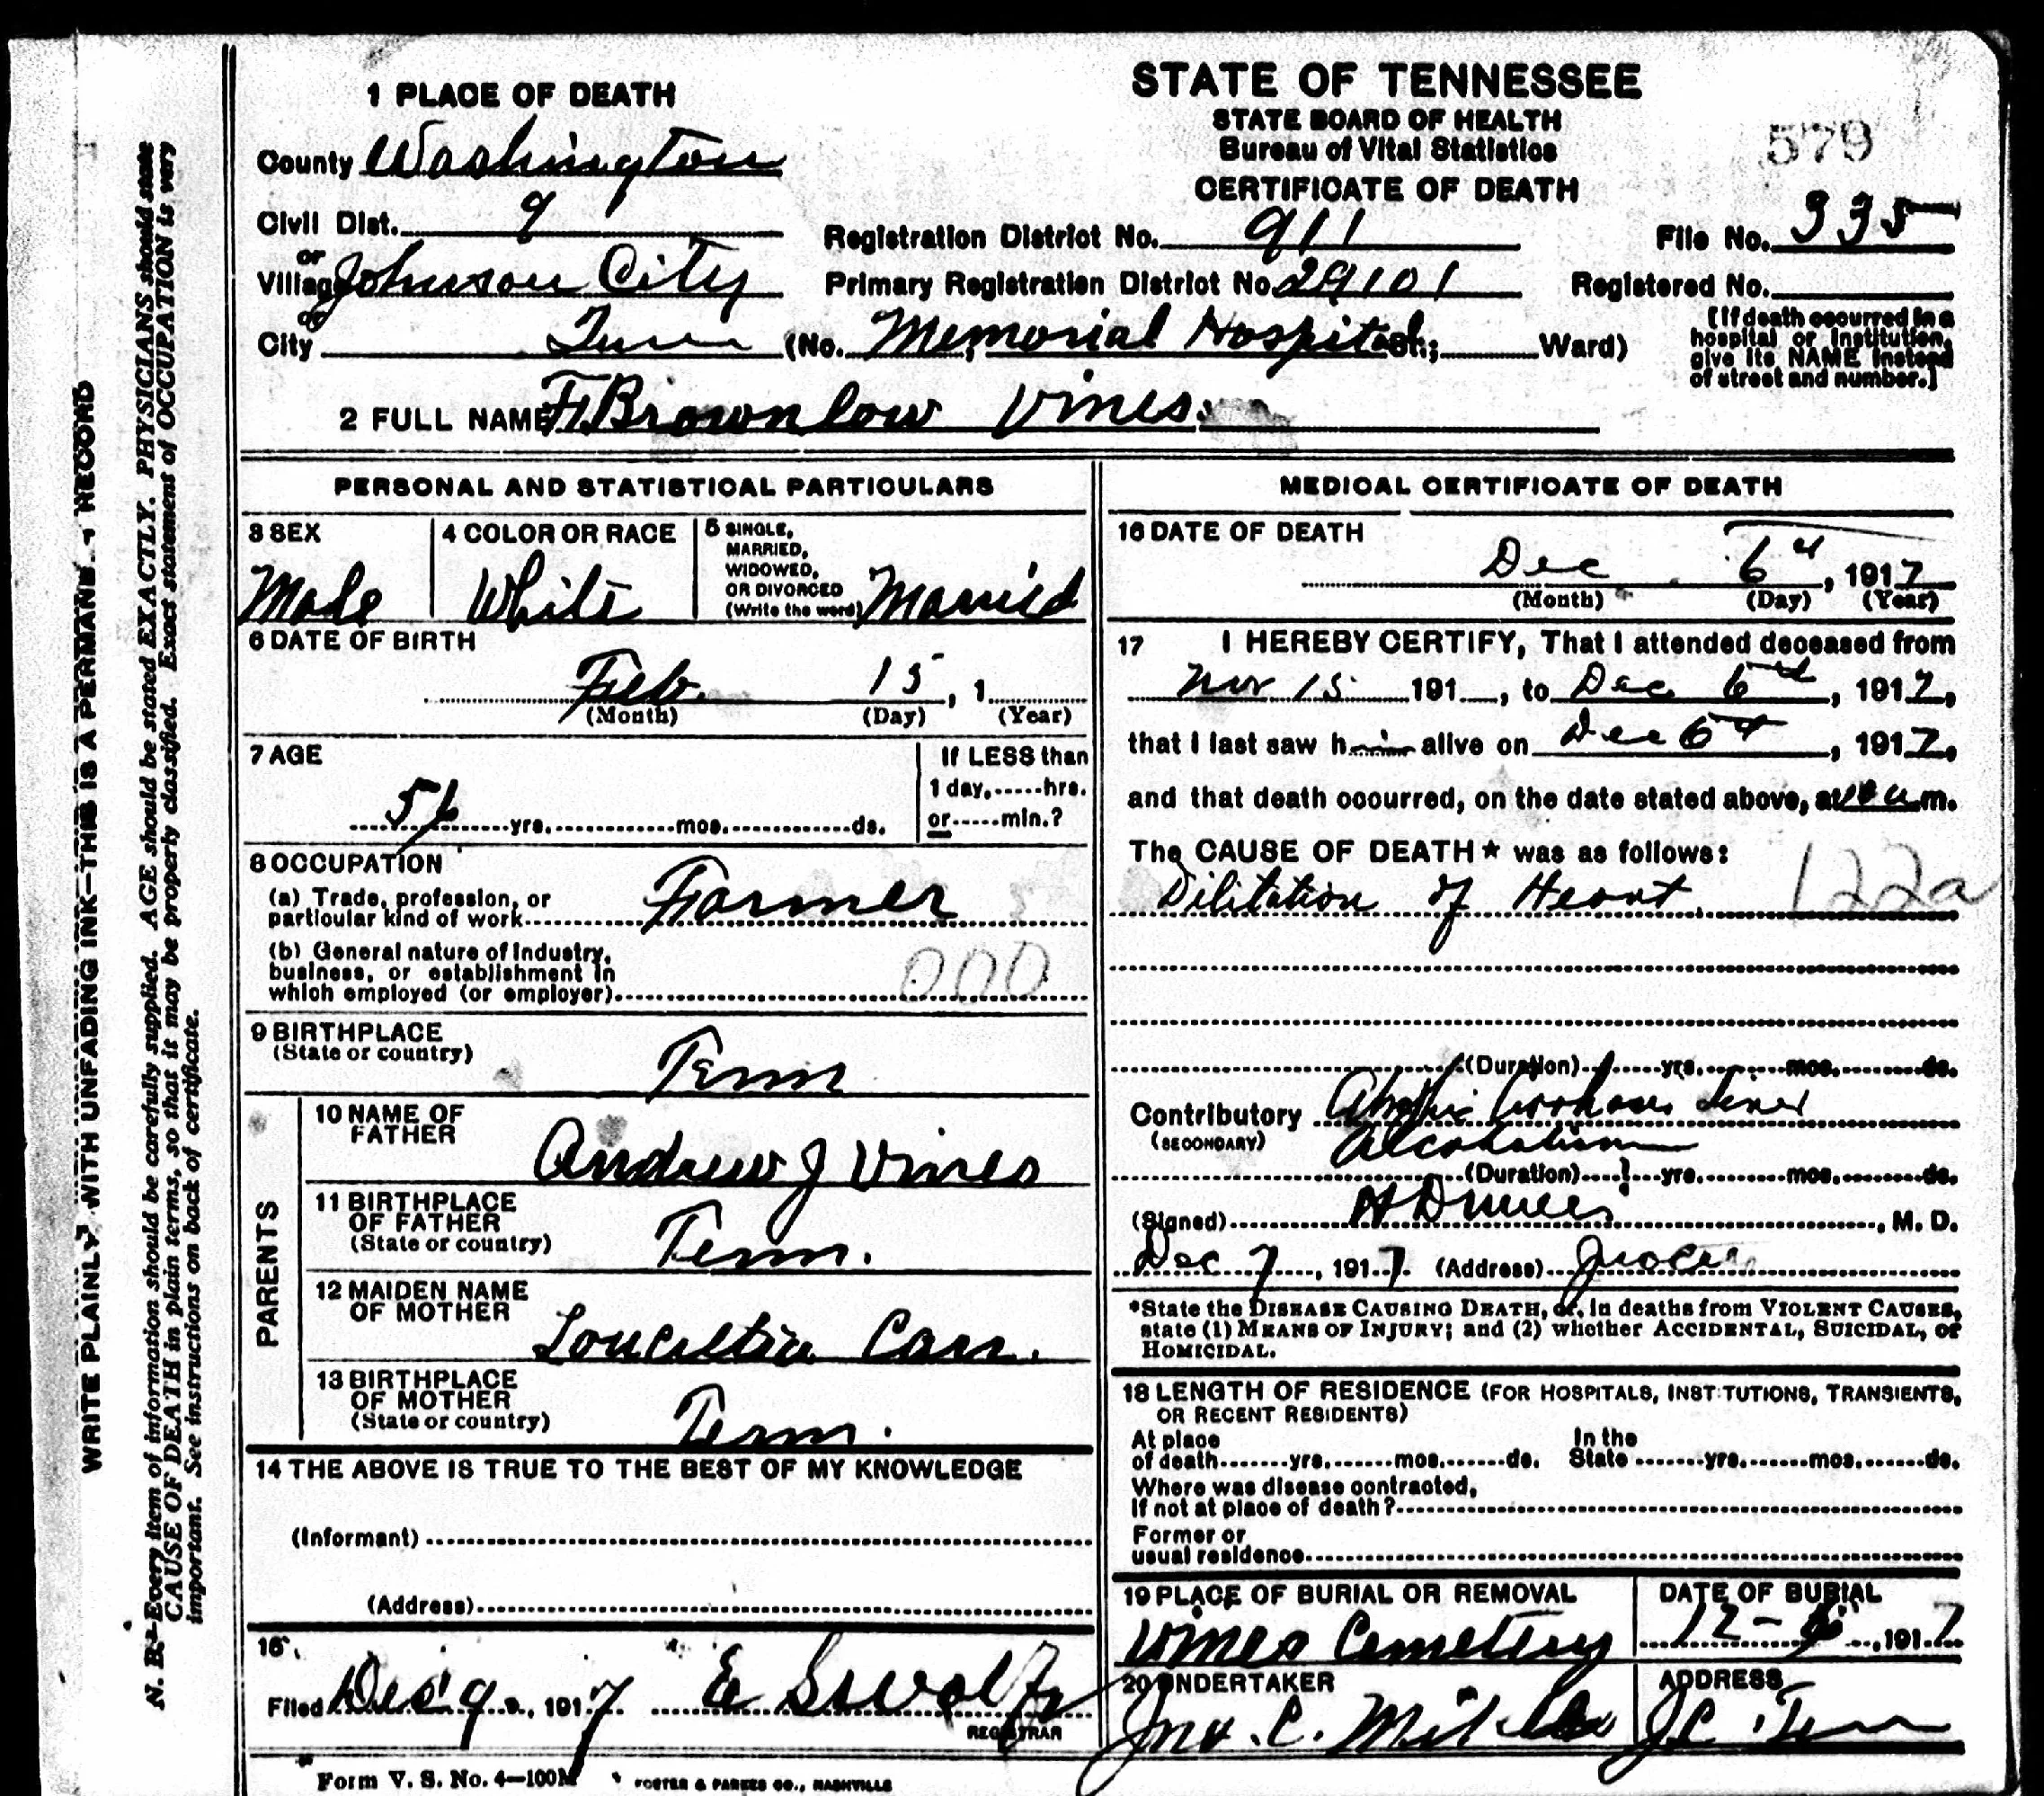 1 PLACE OF DEATH
County Washington
Civil Dist. 9
or
Village Johnson City
or
City Tenn (No. Memorial Hospital St.; Ward)
STATE OF TENNESSEE
STATE BOARD OF HEALTH
Bureau of Vital Statistics
CERTIFICATE OF DEATH
579
Registration District No. 911
File No. 335
Primary Registration District No. 29101
Registered No.
[If death occurred in a
hospital or institution,
give its NAME instead
of street and number.]
2 FULL NAME F. Brownlow Vines.
PERSONAL AND STATISTICAL PARTICULARS
3 SEX
Male
4 COLOR OR RACE
White
5 SINGLE,
MARRIED,
WIDOWED,
OR DIVORCED
(Write the word) Married
6 DATE OF BIRTH
Feb. 15, 1
(Month) (Day) (Year)
7 AGE
56 yrs. mos. ds.
If LESS than
1 day, hrs.
or min.?
8 OCCUPATION
(a) Trade, profession, or
particular kind of work Farmer
(b) General nature of Industry,
business, or establishment in
which employed (or employer) 000
9 BIRTHPLACE
(State or country) Tenn
PARENTS
10 NAME OF
FATHER
Andrew J Vines
11 BIRTHPLACE
OF FATHER
(State or country) Tenn.
12 MAIDEN NAME
OF MOTHER
Carr.
13 BIRTHPLACE
OF MOTHER
(State or country) Tenn.
14 THE ABOVE IS TRUE TO THE BEST OF MY KNOWLEDGE
(Informant)
(Address)
15
Filed Dec 9, 1917 E Swolfe
REGISTRAR
MEDICAL CERTIFICATE OF DEATH
16 DATE OF DEATH
Dec 6th, 1917
(Month) (Day) (Year)
17 I HEREBY CERTIFY, That I attended deceased from
Nov 15 191 , to Dec 6th, 1917,
that I last saw him alive on Dec 6th, 1917,
and that death occurred, on the date stated above, at m.
The CAUSE OF DEATH* was as follows:
Dilitation of Heart. 122a
(Duration) yrs. mos. ds.
Contributory
(SECONDARY) Alcoholism
(Duration) ? yrs. mos. ds.
(Signed) , M. D.
Dec 7, 1917. (Address)
*State the DISEASE CAUSING DEATH, or, in deaths from VIOLENT CAUSES,
state (1) MEANS OF INJURY; and (2) whether ACCIDENTAL, SUICIDAL, or
HOMICIDAL.
18 LENGTH OF RESIDENCE (FOR HOSPITALS, INSTITUTIONS, TRANSIENTS,
OR RECENT RESIDENTS)
At place In the
of death yrs. mos. ds. State yrs. mos. ds.
Where was disease contracted,
If not at place of death?
Former or
usual residence
19 PLACE OF BURIAL OR REMOVAL
Vines Cemetery
DATE OF BURIAL
12- , 1917
20 UNDERTAKER
Jno. C.
ADDRESS
J C. Tenn
Form V. S. No. 4—100M
FOSTER & PARKES CO., NASHVILLE
WRITE PLAINLY WITH UNFADING INK—THIS IS A PERMANENT RECORD
N. B.—Every item of information should be carefully supplied. AGE should be stated EXACTLY. PHYSICIANS should state
CAUSE OF DEATH in plain terms, so that it may be properly classified. Exact statement of OCCUPATION is very
important. See instructions on back of certificate.